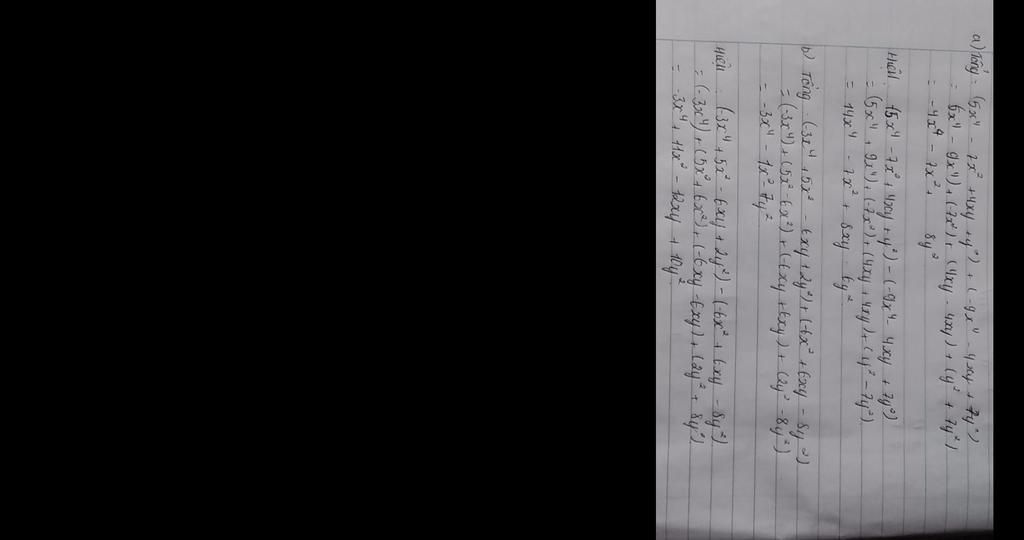 a) Tổng = (5x⁴ - 7x² + 4xy + y²) + (-9x⁴ - 4xy + 7y²)
= 5x⁴ - 9x⁴) + (-7x²) + (4xy - 4xy) + (y² + 7y²)
= -4x⁴ - 7x² + 8y²
Hiệu : (5x⁴ - 7x² + 4xy + y²) - (-9x⁴ - 4xy + 7y²)
= (5x⁴ + 9x⁴) + (-7x²) + (4xy + 4xy) + (y² - 7y²)
= 14x⁴ - 7x² + 8xy - 6y²
b) Tổng : (-3x⁴ + 5x² - 6xy + 2y²) + (-6x² + 6xy - 8y²)
= (-3x⁴) + (5x² - 6x²) + (-6xy + 6xy) + (2y² - 8y²)
= -3x⁴ - 1x² - 7y²
Hiệu : (-3x⁴ + 5x² - 6xy + 2y²) - (-6x² + 6xy - 8y²)
= (-3x⁴) + (5x² + 6x²) + (-6xy - 6xy) + (2y² + 8y²)
= -3x⁴ + 11x² - 12xy + 10y²